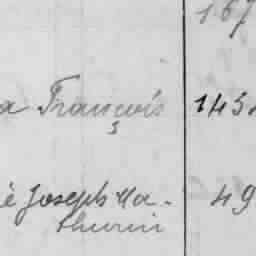 167
a François 143
è Joseph Ma- 49
thurin